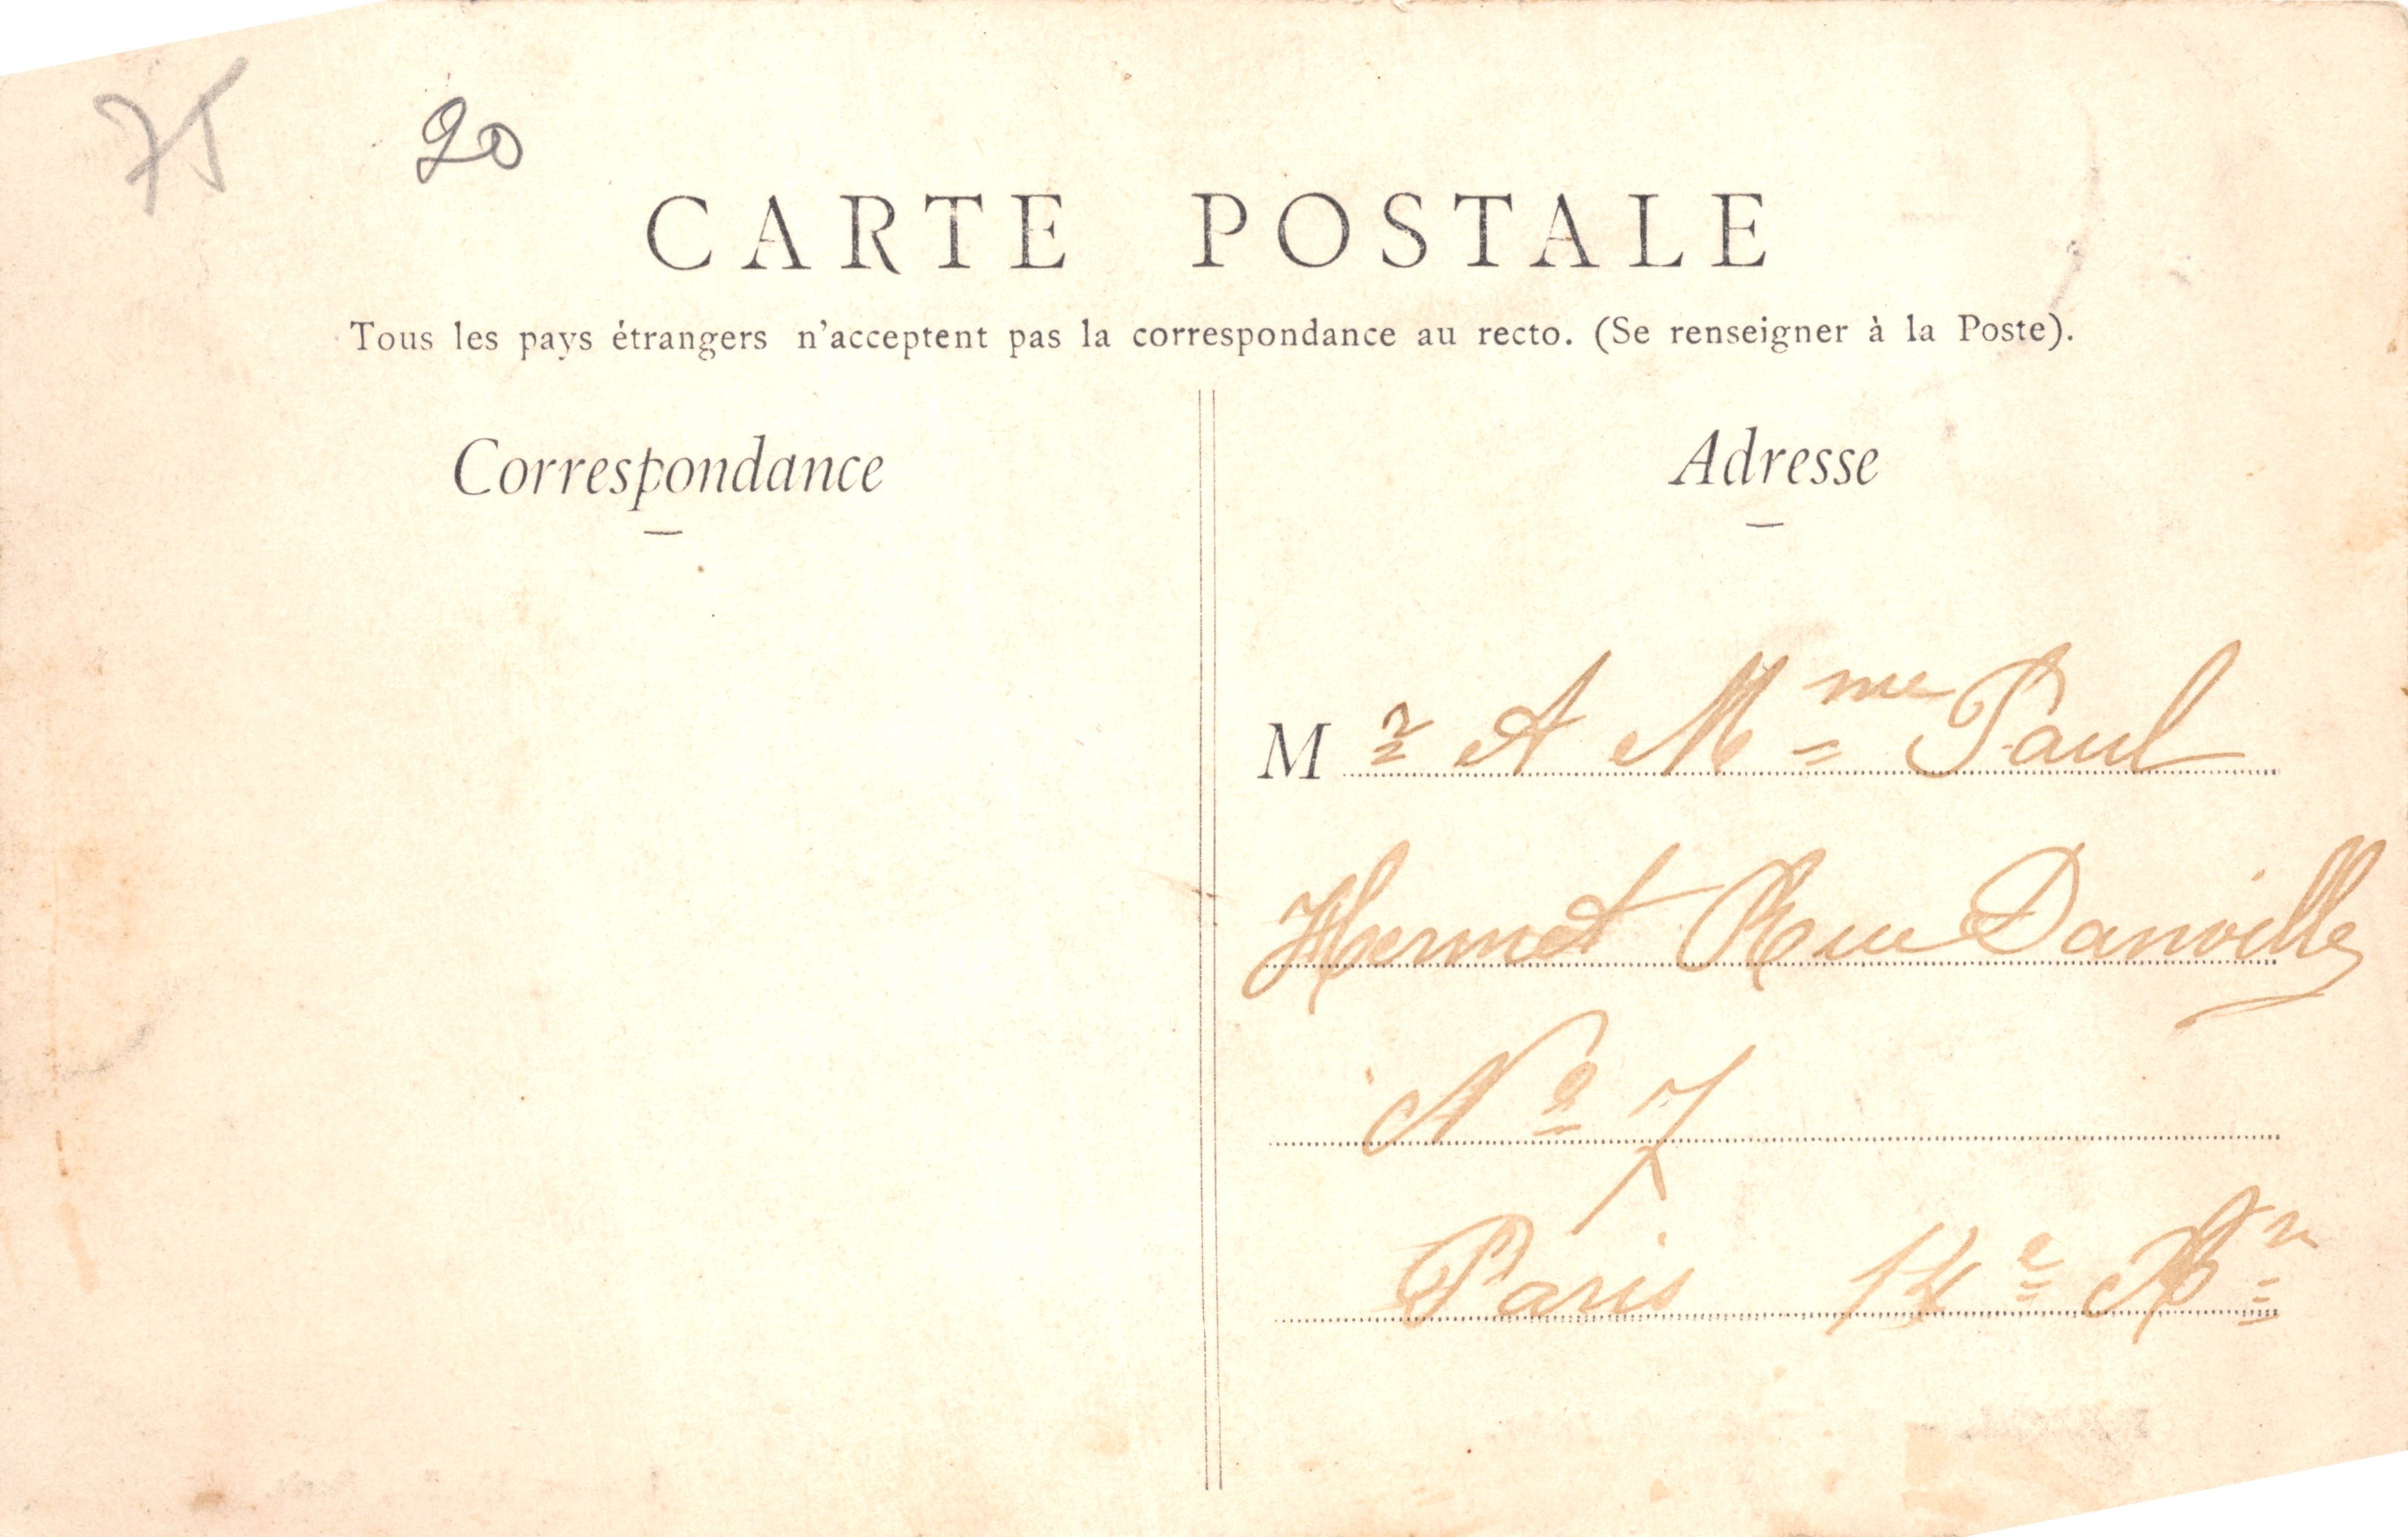 75
20
CARTE POSTALE
Tous les pays étrangers n'acceptent pas la correspondance au recto. (Se renseigner à la Poste).
Correspondance
Adresse
M r A Mme Paul
Hermet Rue Danville
No 7
Paris 14e Arr